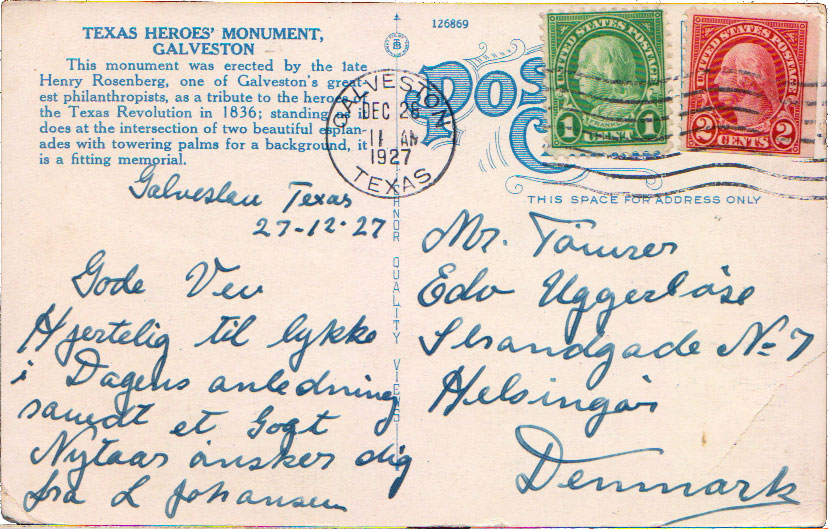 TEXAS HEROES' MONUMENT,
GALVESTON
This monument was erected by the late
Henry Rosenberg, one of Galveston's great-
est philanthropists, as a tribute to the heroes of
the Texas Revolution in 1836; standing as it
does at the intersection of two beautiful esplan-
ades with towering palms for a background, it
is a fitting memorial.
126869
GALVESTON
DEC 26
11 AM
1927
TEXAS
UNITED STATES POSTAGE
FRANKLIN
1 CENT 1
UNITED STATES POSTAGE
2 CENTS 2
THIS SPACE FOR ADDRESS ONLY
QUALITY VIEWS
Galveston Texas
27-12-27
Gode Ven
Hjertelig til lykke
i Dagens anledning
samdt et Gogt
Nytaar ønsker dig
fra L Johansen
Mr. Tømrer
Edv Uggerløse
Strandgade No 7
Helsingør
Denmark